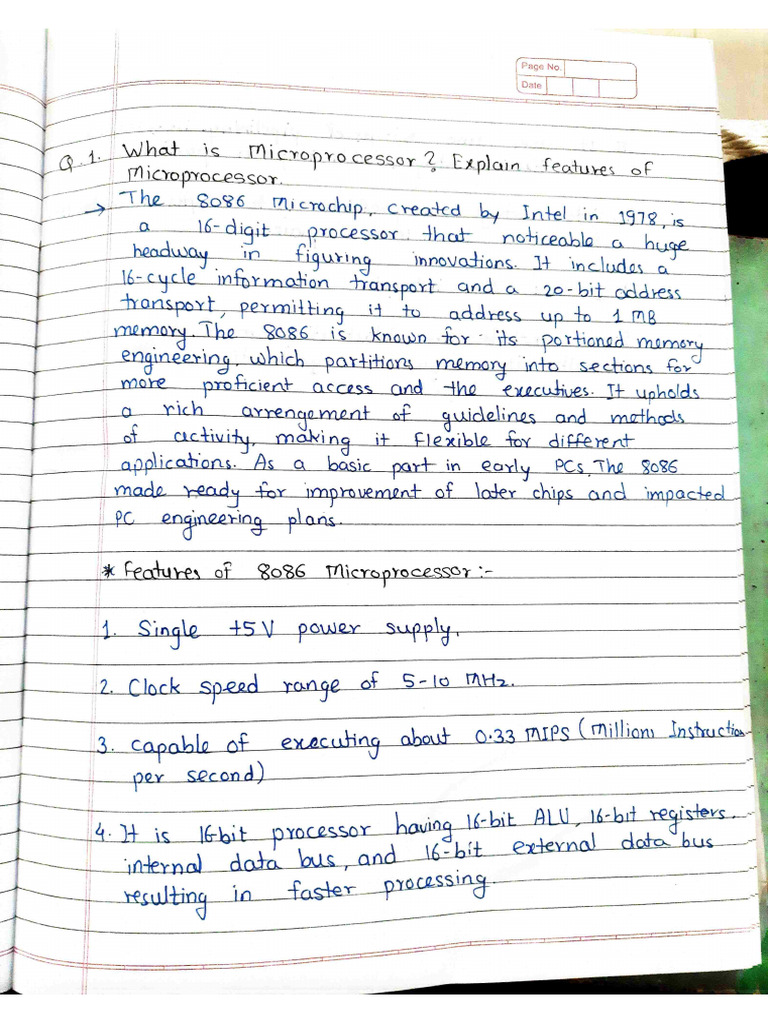 Page No.
Date
Q.1. What is Microprocessor? Explain features of
Microprocessor.
→ The 8086 Microchip, created by Intel in 1978, is
a 16-digit processor that noticeable a huge
headway in figuring innovations. It includes a
16-cycle information transport and a 20-bit address
transport, permitting it to address up to 1 MB
memory. The 8086 is known for its portioned memory
engineering, which partitions memory into sections for
more proficient access and the executives. It upholds
a rich arrengement of guidelines and methods
of activity, making it flexible for different
applications. As a basic part in early PCs, The 8086
made ready for improvement of later chips and impacted
PC engineering plans.
* Features of 8086 Microprocessor:-
1. Single +5V power supply.
2. Clock speed range of 5-10 MHz.
3. Capable of executing about 0.33 MIPS (Millions Instruction
per second)
4. It is 16-bit processor having 16-bit ALU, 16-bit registers.
internal data bus, and 16-bit external data bus
resulting in faster processing.